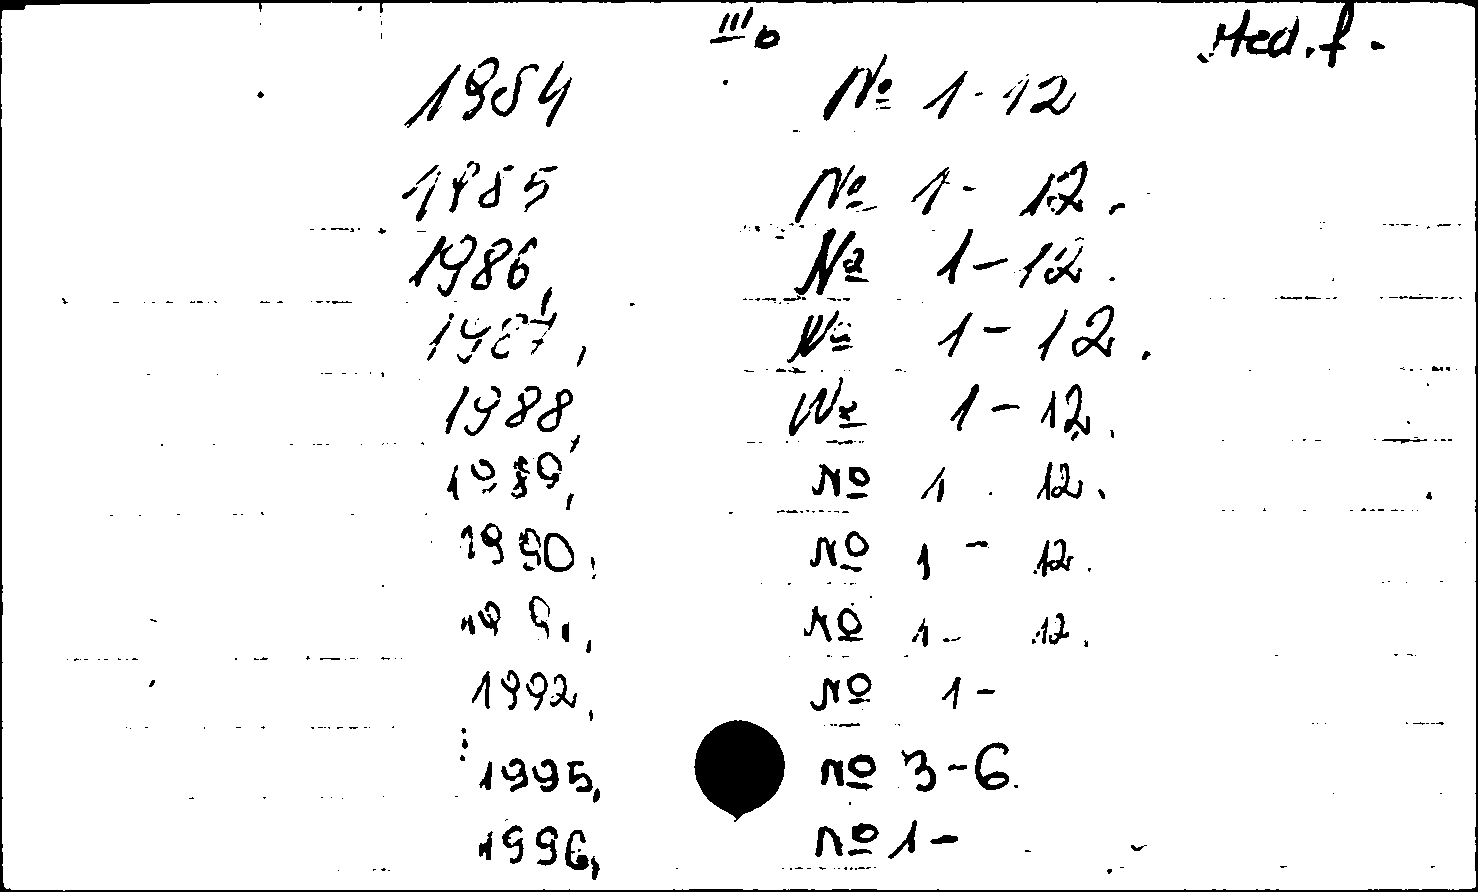 III б Med. f.
1984 № 1-12
1985 № 1-12.
1986, № 1-12.
1987, № 1-12.
1988, № 1-12.
1989, № 1 12.
1990, № 1-12.
1991, № 1-12.
1992, № 1-
1995, № 3-6.
1996, № 1-